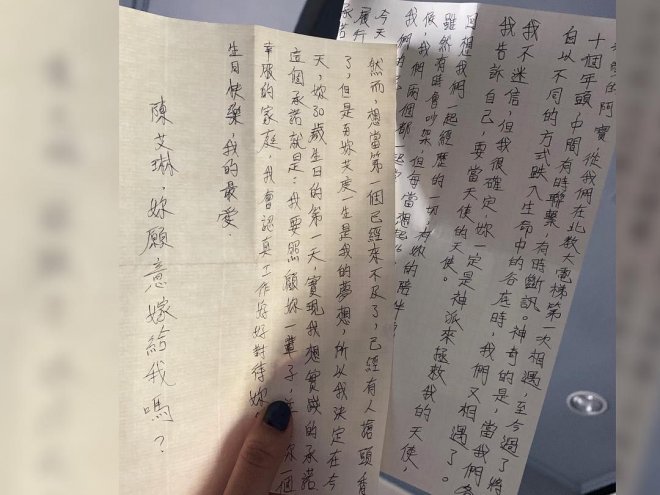 的阿寶,從我們在北教大電梯第一次相遇,至今過了將
十個年頭,中間有時聯繫,有時斷訊。神奇的是,當我們各
自以不同的方式跌入生命中的谷底時,我們又相遇了。
我不迷信,但我很確定,妳一定是神派來拯救我的天使,
我告訴自己,要當天使的天使。
回想我們一起經歷的一切,有妳的陪伴
雖然有時會吵架,但每當想起
我們兩個都一起
今天
履行
承諾
然而,想當第一個已經來不及了,已經有人搶頭香
了,但是與妳共度一生是我的夢想,所以我決定在今
天,妳30歲生日的第一天,實現我想實踐的承諾
這個承諾就是:我要照顧妳一輩子,一個
幸福的家庭,我會認真工作好好對待妳,
生日快樂,我的最愛.
陳艾琳,妳願意嫁給我嗎?